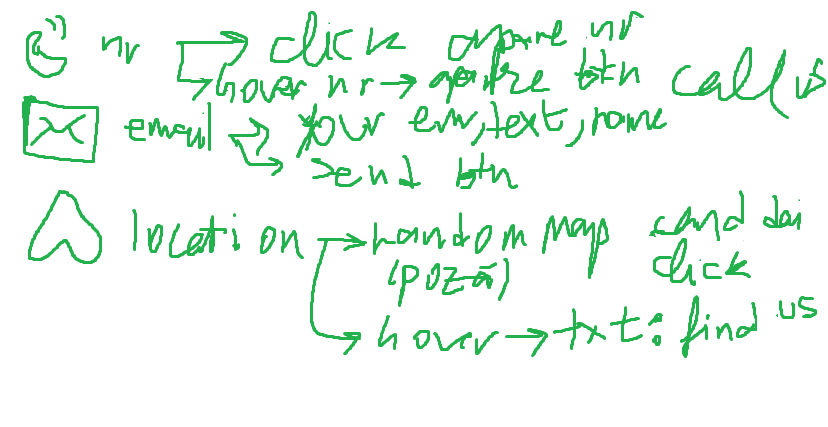 nr → click apare nr
hover nr → apare btn call us
email → your em, text, name
→ send btn
location → random map cand dai click
(poză)
→ hover → txt: find us